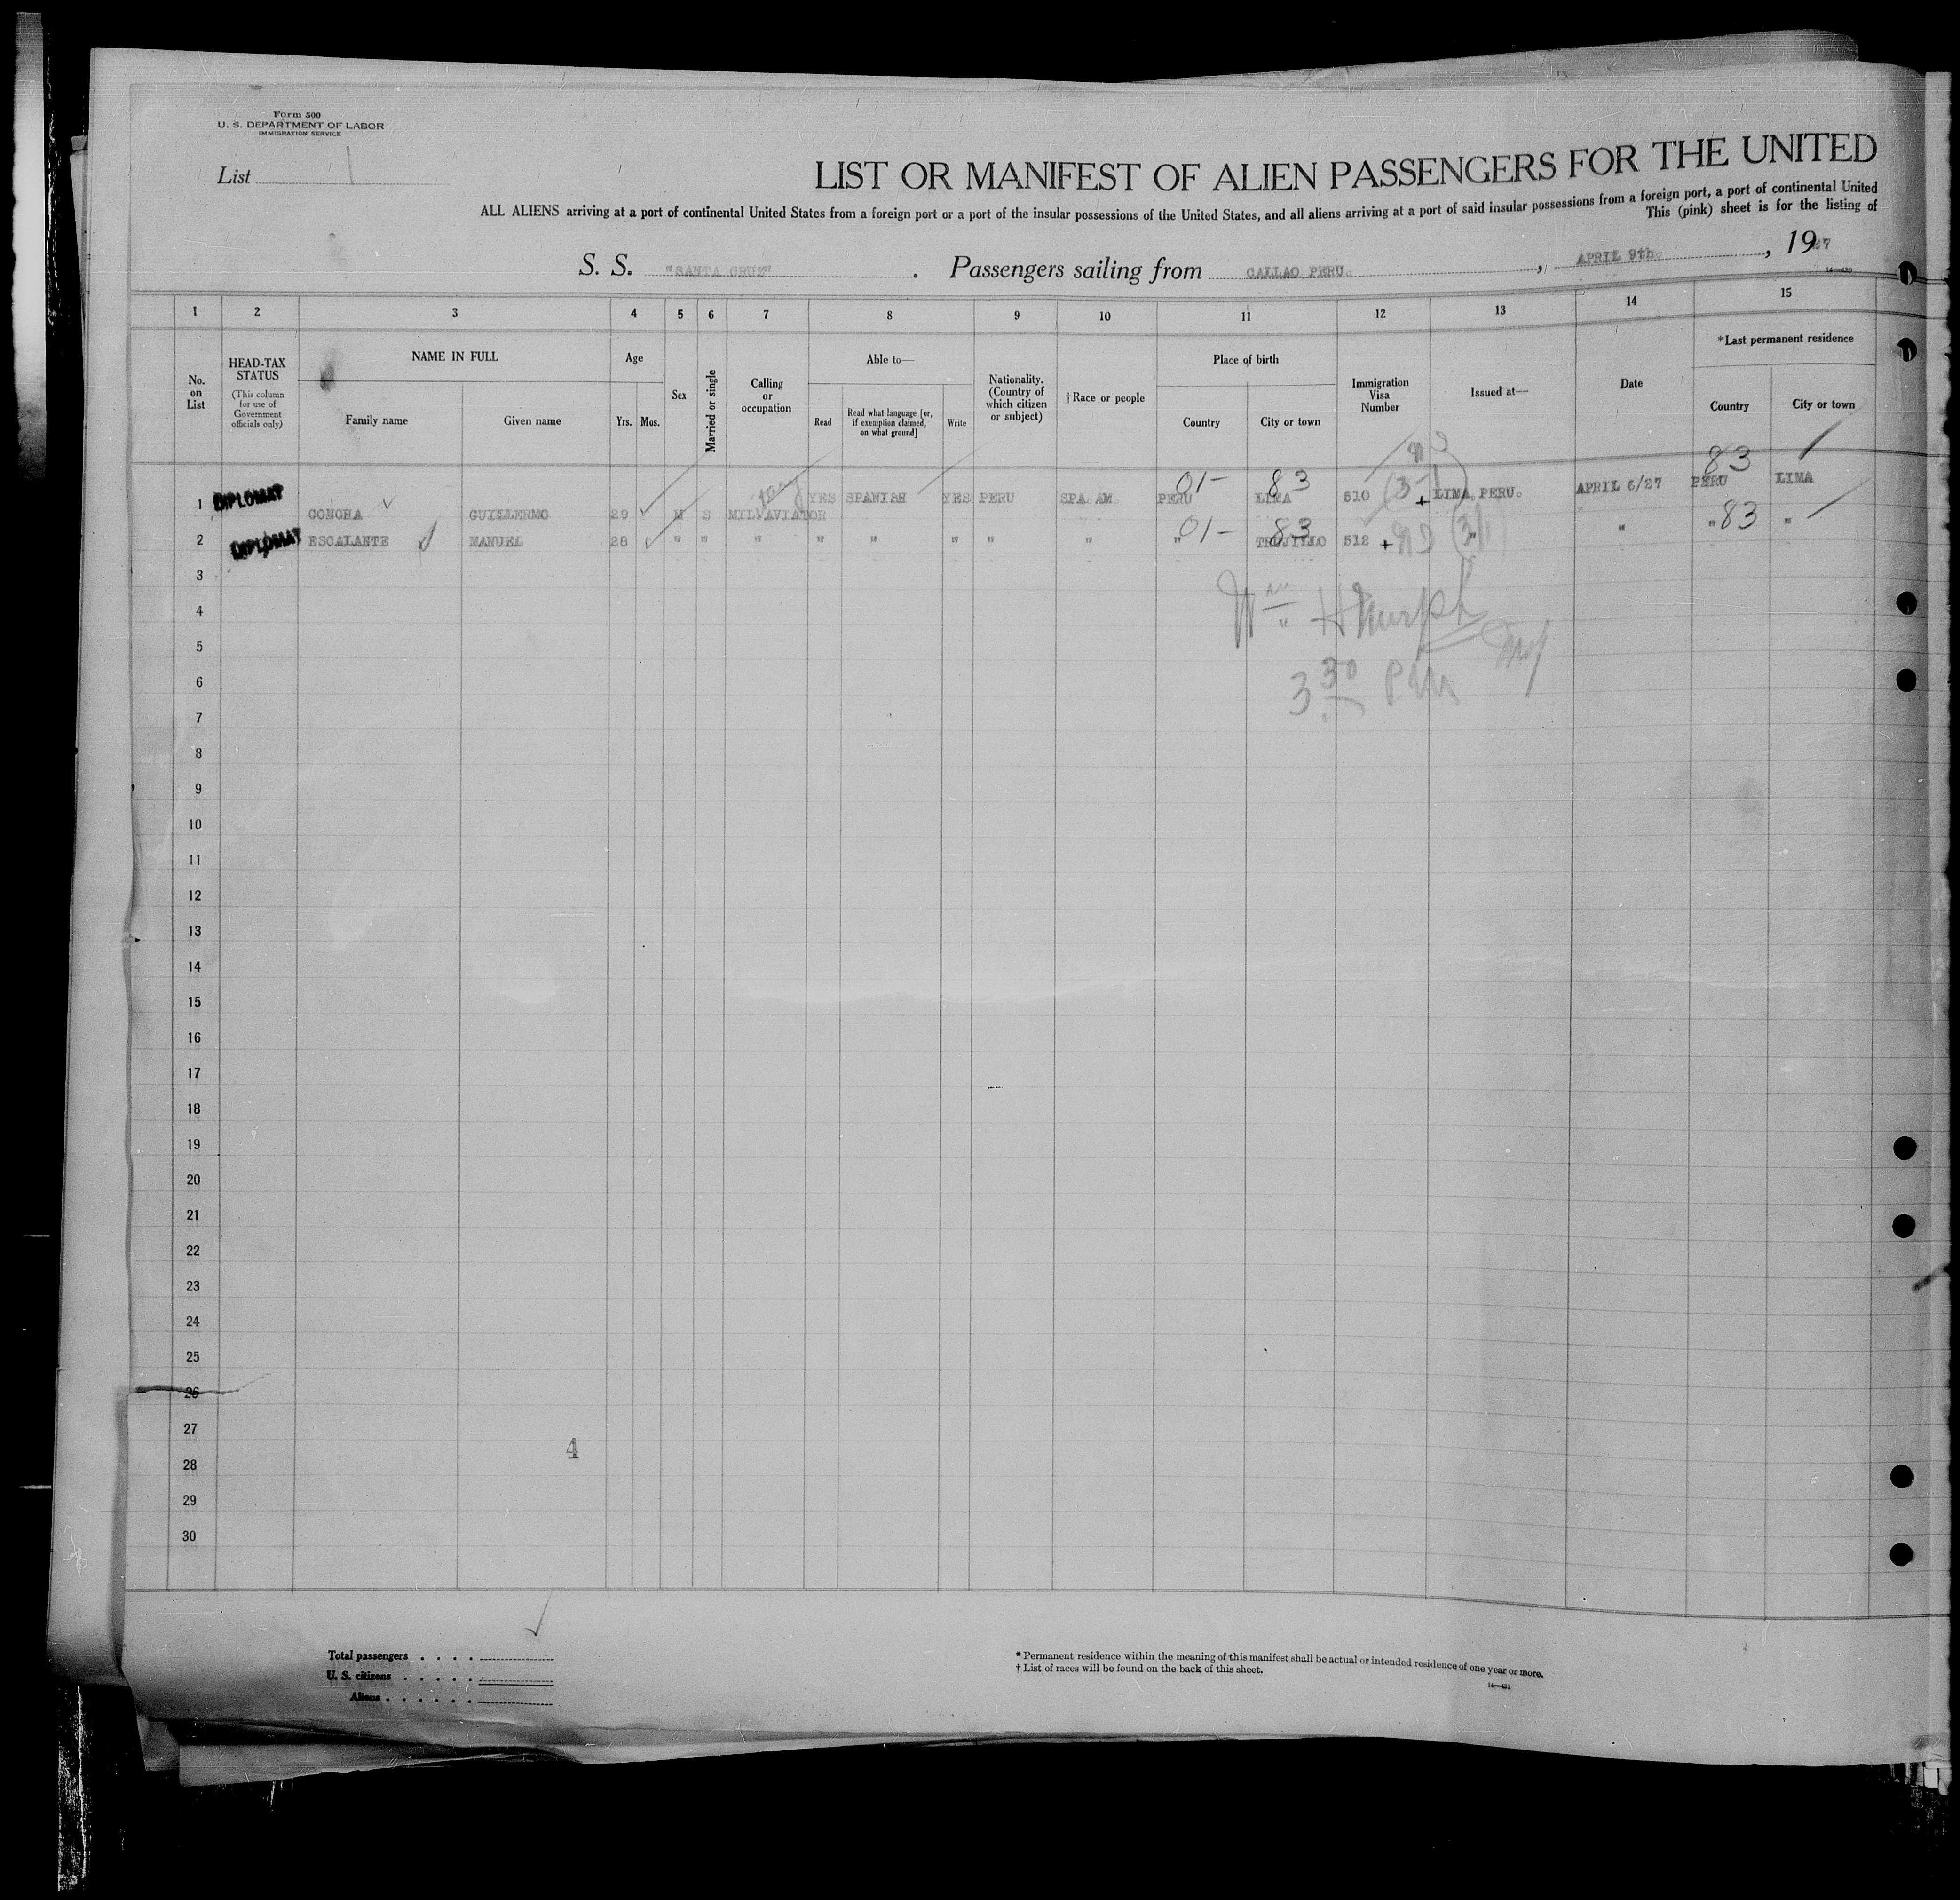 Form 500
U. S. DEPARTMENT OF LABOR
IMMIGRATION SERVICE
List 1
LIST OR MANIFEST OF ALIEN PASSENGERS FOR THE UNITED
ALL ALIENS arriving at a port of continental United States from a foreign port or a port of the insular possessions of the United States, and all aliens arriving at a port of said insular possessions from a foreign port, a port of continental United
This (pink) sheet is for the listing of
S. S. "SANTA CRUZ" . Passengers sailing from CALLAO PERU. , APRIL 9th , 1927
1 2 3 4 5 6 7 8 9 10 11 12 13 14 15
No. on List
HEAD-TAX STATUS
(This column for use of Government officials only)
NAME IN FULL
Family name Given name
Age
Yrs. Mos.
Sex
Married or single
Calling or occupation
Able to—
Read
Read what language [or, if exemption claimed, on what ground]
Write
Nationality. (Country of which citizen or subject)
† Race or people
Place of birth
Country City or town
Immigration Visa Number
Issued at—
Date
*Last permanent residence
Country City or town
1 DIPLOMAT CONCHA GUILLERMO 29 M S MIL. AVIATOR YES SPANISH YES PERU SPA. AM. PERU 01- LIMA 83 510 + LIMA, PERU. APRIL 6/27 PERU 83 LIMA
2 DIPLOMAT ESCALANTE MANUEL 28 " " " " " " " " " 01- TRUJILLO 83 512 + " " " 83 "
3
4
5
6
3 30 PM
7
8
9
10
11
12
13
14
15
16
17
18
19
20
21
22
23
24
25
26
27
4
28
29
30
Total passengers
U. S. citizens
Aliens
* Permanent residence within the meaning of this manifest shall be actual or intended residence of one year or more.
† List of races will be found on the back of this sheet.